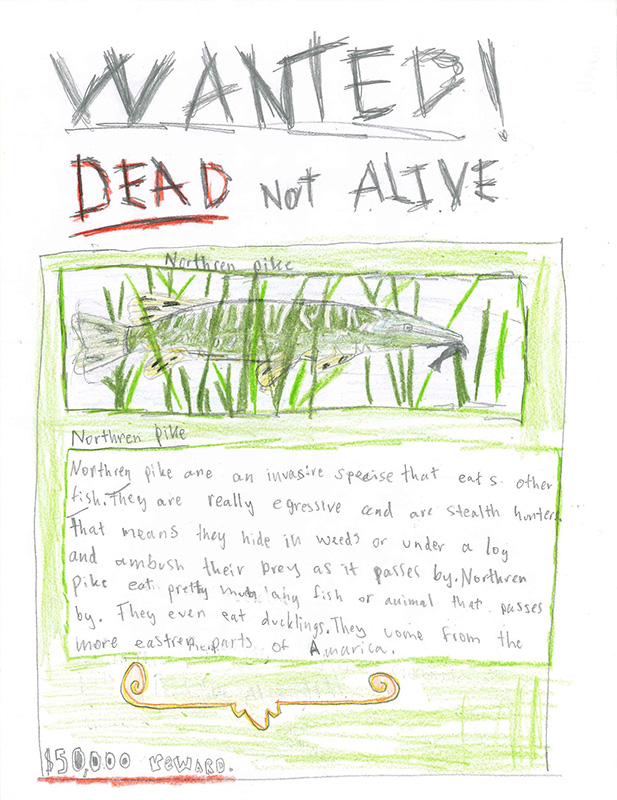 WANTED!
DEAD Not ALIVE
Northren pike
Northren pike
Northren pike are an invasire specise that eats other
fish. They are really egressive and are stealth hunters
That means they hide in weeds or under a log
and ambush their prey as it passes by. Northren
pike eat pretty much any fish or animal that passes
by. They even eat ducklings. They come from the
more eastren parts of Amarica.
$50,000 reWARD.